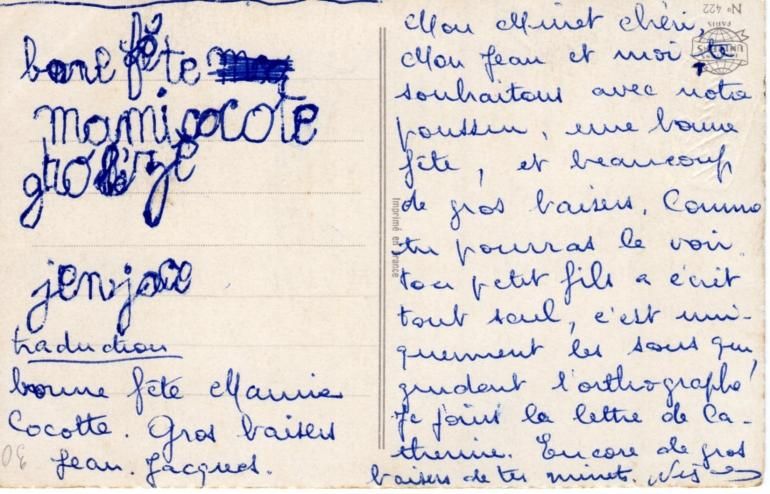 bone fête
mamicocote
gro bèzé
jenjac
traduction
bonne fête Mamie
Cocotte. Gros baisers
Jean. Jacques.
30
Mon Minet chéri,
Mon Jean et moi te
souhaitons avec notre
poussin, une bonne
fête, et beaucoup
de gros baisers. Comme
tu pourras le voir
ton petit fils a écrit
tout seul, c'est uni-
quement les sons qui
guident l'orthographe
Je joins la lettre de Ca-
therine. Encore de gros
baisers de tes minets.
Imprimé en France
N° 422
PARIS